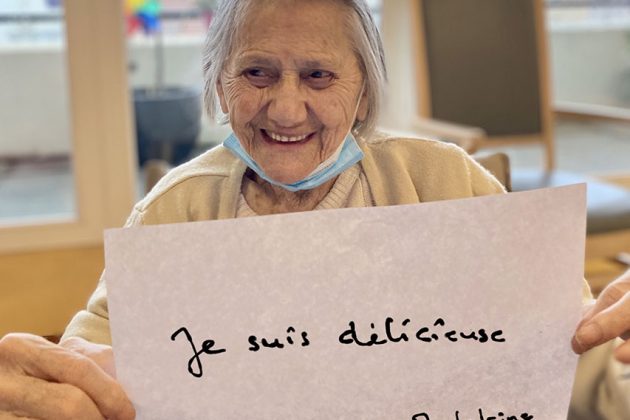 Je suis délicieuse